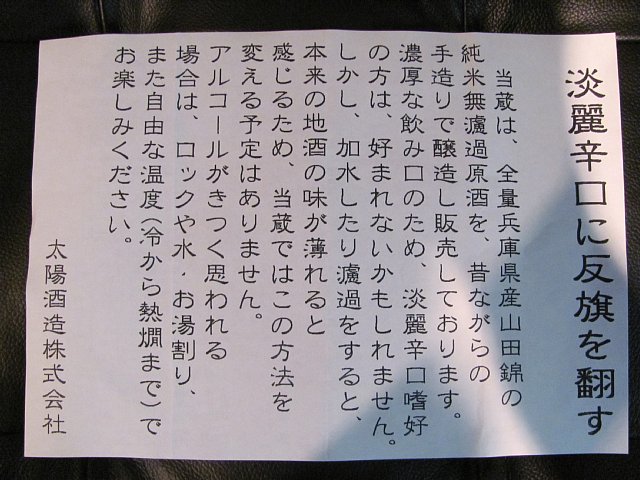 淡麗辛口に反旗を翻す
当蔵は、全量兵庫県産山田錦の
純米無濾過原酒を、昔ながらの
手造りで醸造し販売しております。
濃厚な飲み口のため、淡麗辛口嗜好
の方は、好まれないかもしれません。
しかし、加水したり濾過をすると、
本来の地酒の味が薄れると
感じるため、当蔵ではこの方法を
変える予定はありません。
アルコールがきつく思われる
場合は、ロックや水・お湯割り、
また自由な温度(冷から熱燗まで)で
お楽しみください。
太陽酒造株式会社